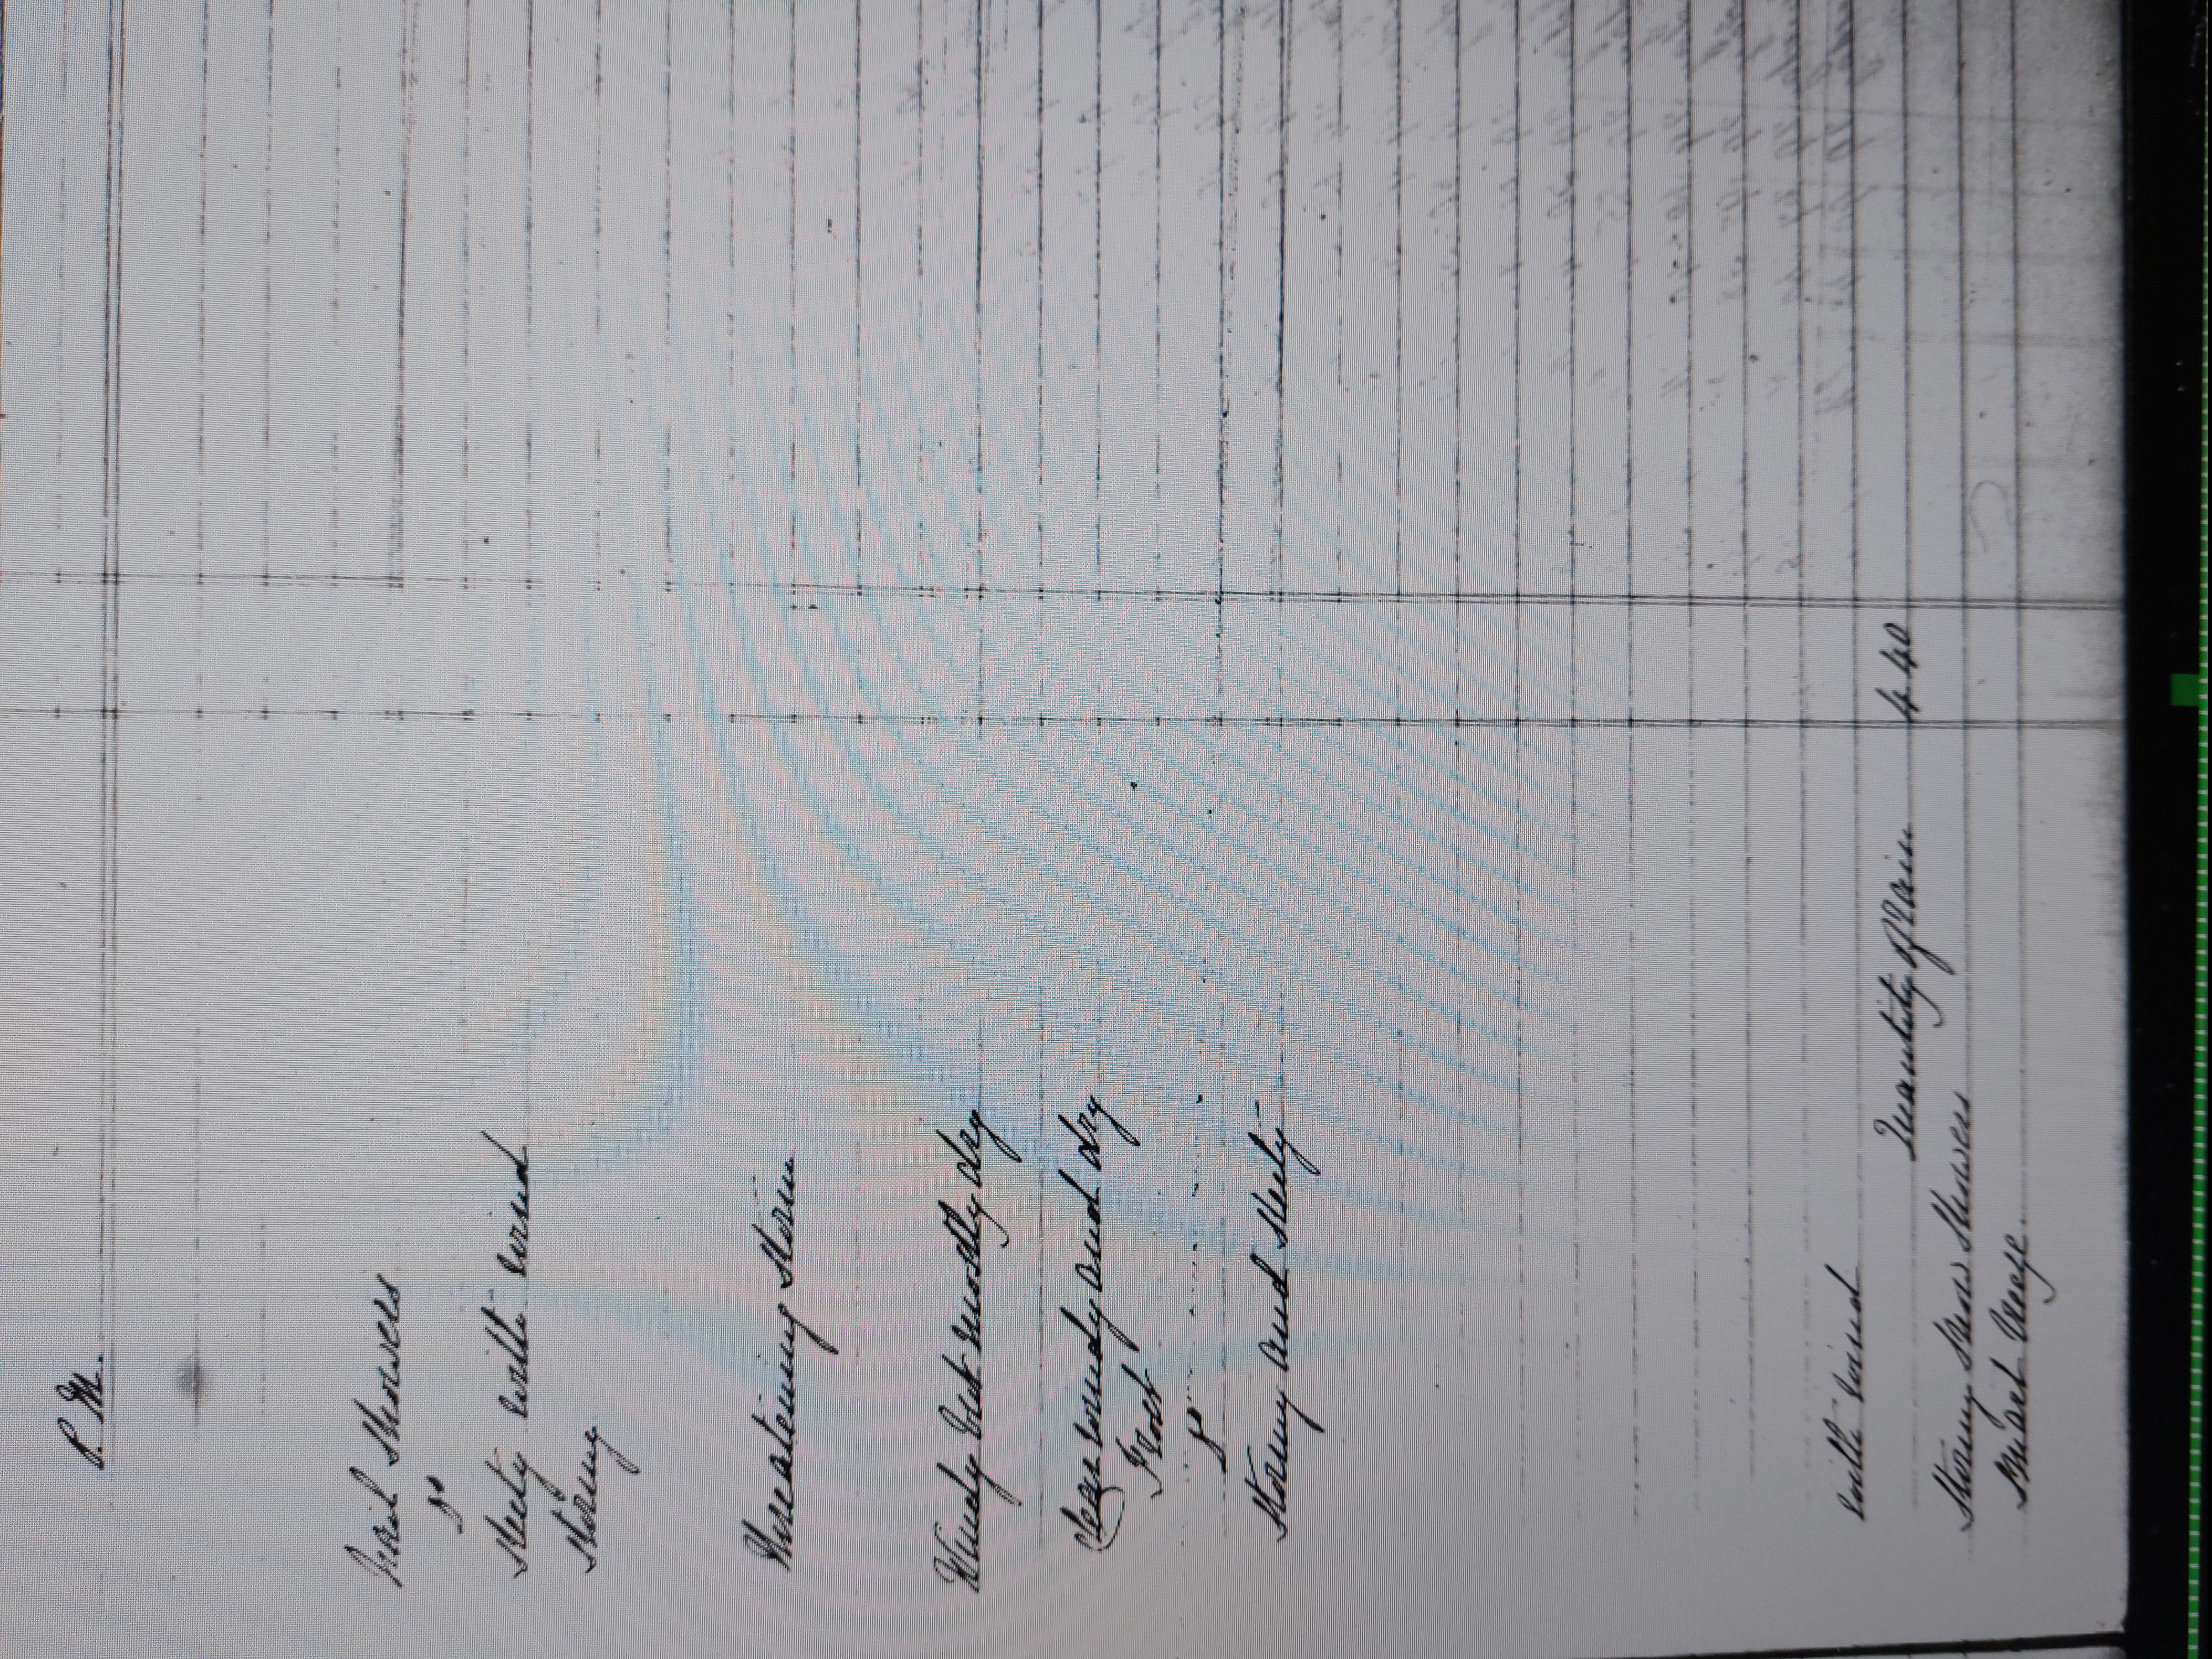 P. M.
hail Showers
Do
Sleety with wind
Stormy
Threatening Storm
Windy but mostly dry
clear windy and dry
Frost
Do
Stormy and Sleety
with wind
Quantity of rain 4 40
Stormy Snow Showers
Smart breeze.